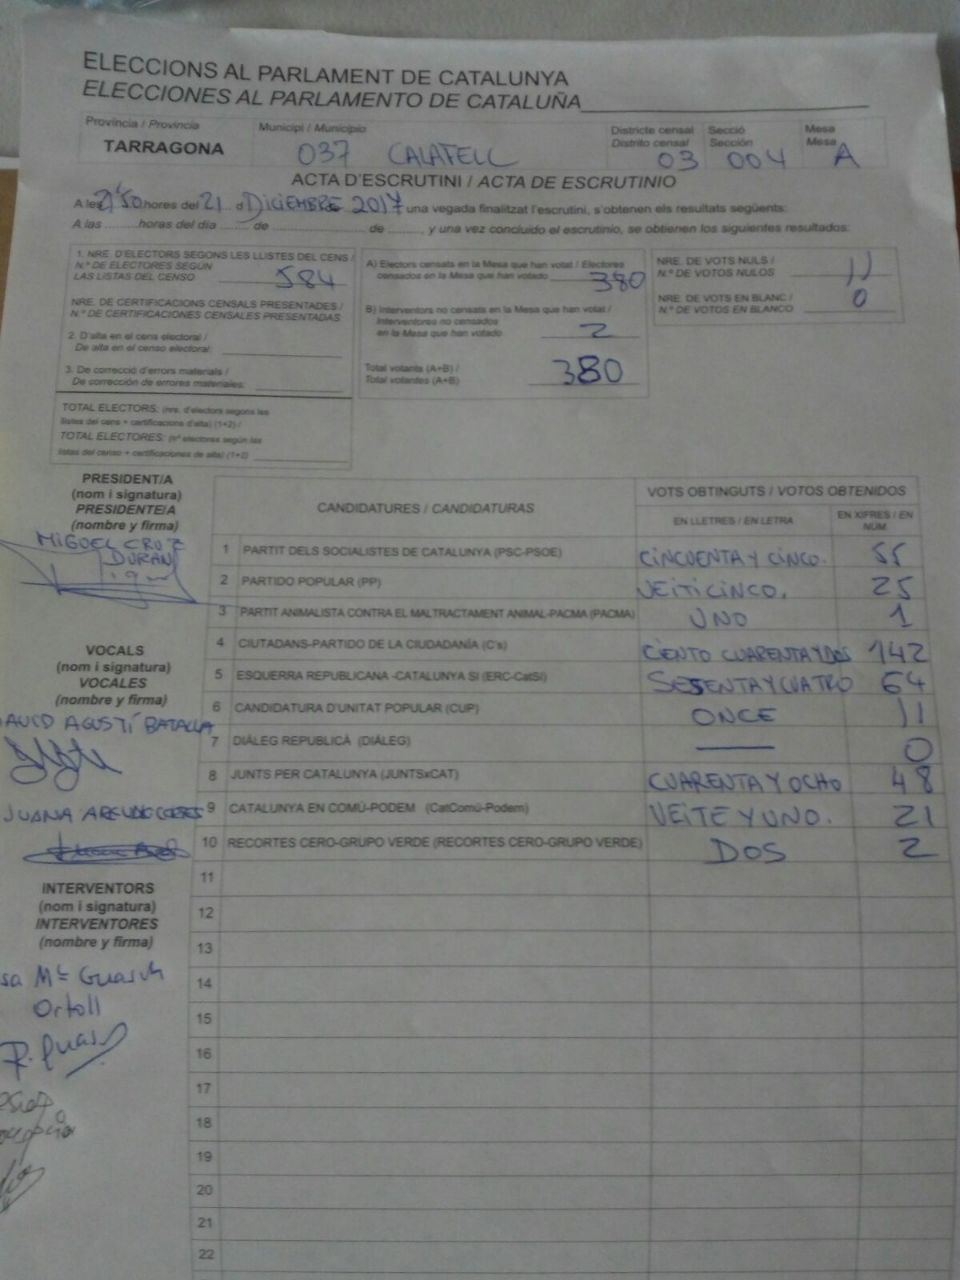 ELECCIONS AL PARLAMENT DE CATALUNYA
ELECCIONES AL PARLAMENTO DE CATALUÑA
Província / Provincia
TARRAGONA
Municipi / Municipio
037 CALAFELL
Districte censal
Distrito censal
03
Secció
Sección
004
Mesa
Mesa
A
ACTA D'ESCRUTINI / ACTA DE ESCRUTINIO
A les 21'50 hores del 21 d DICIEMBRE 2017 una vegada finalitzat l'escrutini, s'obtenen els resultats següents:
A las ........ horas del día ........ de ........ de ........, y una vez concluido el escrutinio, se obtienen los siguientes resultados:
1. NRE. D'ELECTORS SEGONS LES LLISTES DEL CENS /
N.º DE ELECTORES SEGÚN
LAS LISTAS DEL CENSO 584
NRE. DE CERTIFICACIONS CENSALS PRESENTADES /
N.º DE CERTIFICACIONES CENSALES PRESENTADAS
2. D'alta en el cens electoral /
De alta en el censo electoral:
3. De correcció d'errors materials /
De corrección de errores materiales:
TOTAL ELECTORS: (nre. d'electors segons les
llistes del cens + certificacions d'alta) (1+2) /
TOTAL ELECTORES: (nº electores según las
listas del censo + certificaciones de alta) (1+2)
A) Electors censats en la Mesa que han votat / Electores
censados en la Mesa que han votado 380
B) Interventors no censats en la Mesa que han votat /
Interventores no censados
en la Mesa que han votado 2
Total votants (A+B) /
Total votantes (A+B) 380
NRE. DE VOTS NULS /
N.º DE VOTOS NULOS 11
NRE. DE VOTS EN BLANC /
N.º DE VOTOS EN BLANCO 0
PRESIDENT/A
(nom i signatura)
PRESIDENTE/A
(nombre y firma)
MIGUEL CRUZ
DURAN
VOCALS
(nom i signatura)
VOCALES
(nombre y firma)
DAVID AGUSTÍ BATALLA
JUANA
INTERVENTORS
(nom i signatura)
INTERVENTORES
(nombre y firma)
Mª Guasch
Ortoll
R. Guas
CANDIDATURES / CANDIDATURAS
VOTS OBTINGUTS / VOTOS OBTENIDOS
EN LLETRES / EN LETRA
EN XIFRES / EN NÚM.
1 PARTIT DELS SOCIALISTES DE CATALUNYA (PSC-PSOE) CINCUENTA Y CINCO. 55
2 PARTIDO POPULAR (PP) VEITICINCO. 25
3 PARTIT ANIMALISTA CONTRA EL MALTRACTAMENT ANIMAL-PACMA (PACMA) UNO 1
4 CIUTADANS-PARTIDO DE LA CIUDADANÍA (C's) CIENTO CUARENTA Y DOS 142
5 ESQUERRA REPUBLICANA -CATALUNYA SÍ (ERC-CatSí) SESENTA Y CUATRO 64
6 CANDIDATURA D'UNITAT POPULAR (CUP) ONCE 11
7 DIÀLEG REPUBLICÀ (DIÀLEG) — 0
8 JUNTS PER CATALUNYA (JUNTSxCAT) CUARENTA Y OCHO 48
9 CATALUNYA EN COMÚ-PODEM (CatComú-Podem) VEITE Y UNO. 21
10 RECORTES CERO-GRUPO VERDE (RECORTES CERO-GRUPO VERDE) DOS 2
11
12
13
14
15
16
17
18
19
20
21
22